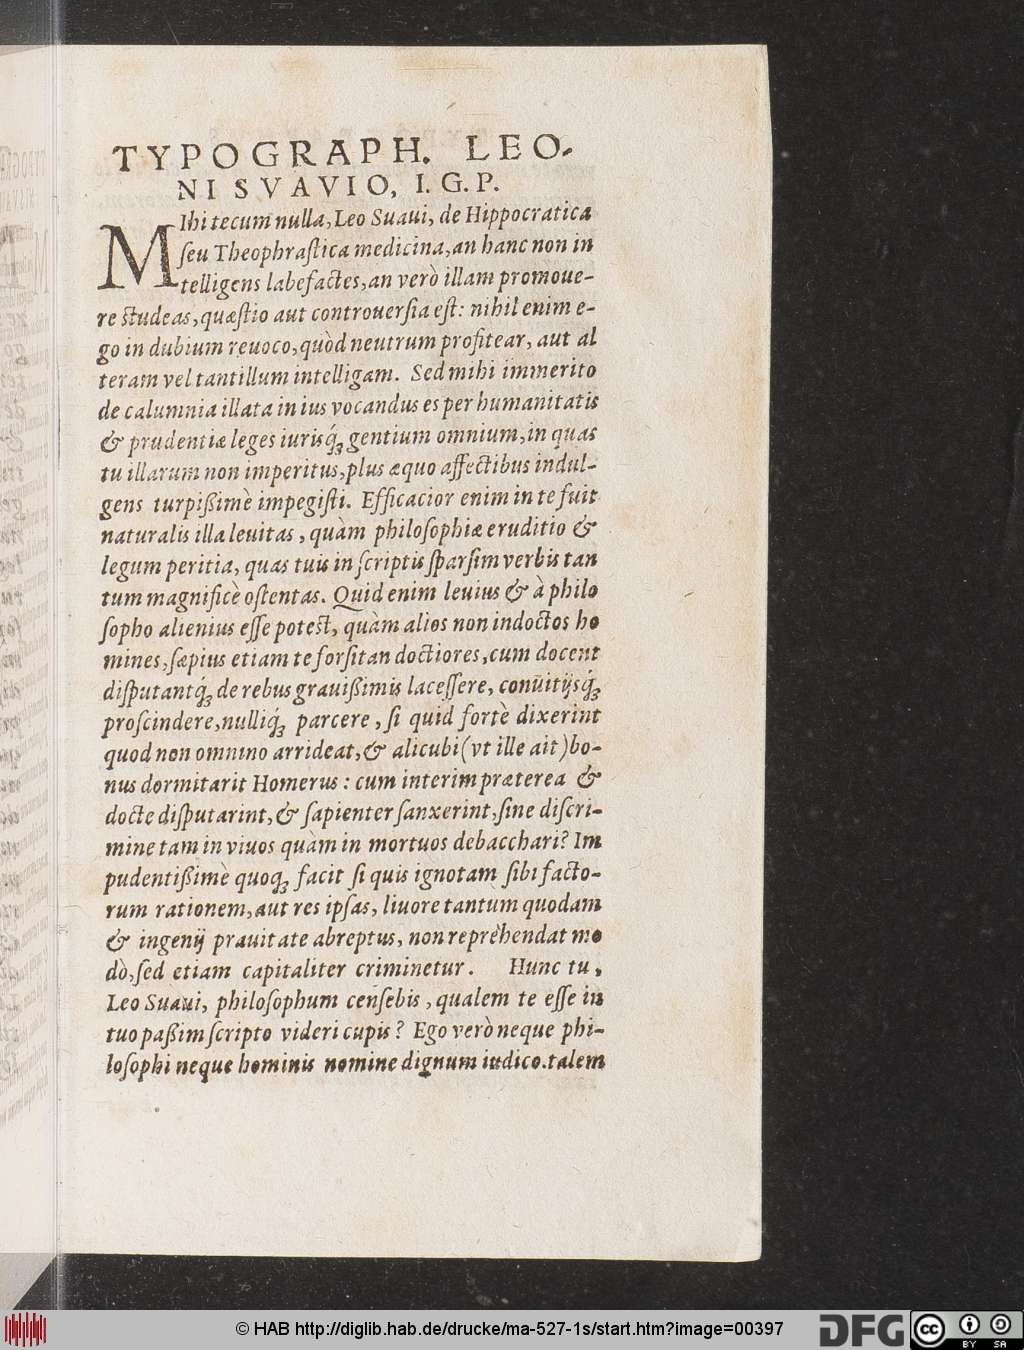 TYPOGRAPH. LEO-
NI SVAVIO, I. G. P.
MIhi tecum nulla, Leo Suaui, de Hippocratica
seu Theophrastica medicina, an hanc non in
telligens labefactes, an verò illam promoue-
re studeas, quæstio aut controuersia est: nihil enim e-
go in dubium reuoco, quòd neutrum profitear, aut al
teram vel tantillum intelligam. Sed mihi immerito
de calumnia illata in ius vocandus es per humanitatis
& prudentiæ leges iurisq́; gentium omnium, in quas
tu illarum non imperitus, plus æquo affectibus indul-
gens turpißimè impegisti. Efficacior enim in te fuit
naturalis illa leuitas, quàm philosophiæ eruditio &
legum peritia, quas tuis in scriptis sparsim verbis tan
tum magnificè ostentas. Quid enim leuius & à philo
sopho alienius esse potest, quàm alios non indoctos ho
mines, sæpius etiam te forsitan doctiores, cum docent
disputantq́; de rebus grauißimis lacessere, conuitijsq́;
proscindere, nulliq́; parcere, si quid fortè dixerint
quod non omnino arrideat, & alicubi (vt ille ait) bo-
nus dormitarit Homerus: cum interim præterea &
docte disputarint, & sapienter sanxerint, sine discri-
mine tam in viuos quàm in mortuos debacchari? Im
pudentißimè quoq; facit si quis ignotam sibi facto-
rum rationem, aut res ipsas, liuore tantùm quodam
& ingenij prauitate abreptus, non reprehendat mo
dò, sed etiam capitaliter criminetur. Hunc tu,
Leo Suaui, philosophum censebis, qualem te esse in
tuo paßim scripto videri cupis? Ego verò neque phi-
losophi neque hominis nomine dignum iudico. talem
© HAB http://diglib.hab.de/drucke/ma-527-1s/start.htm?image=00397
DFG
cc
BY SA